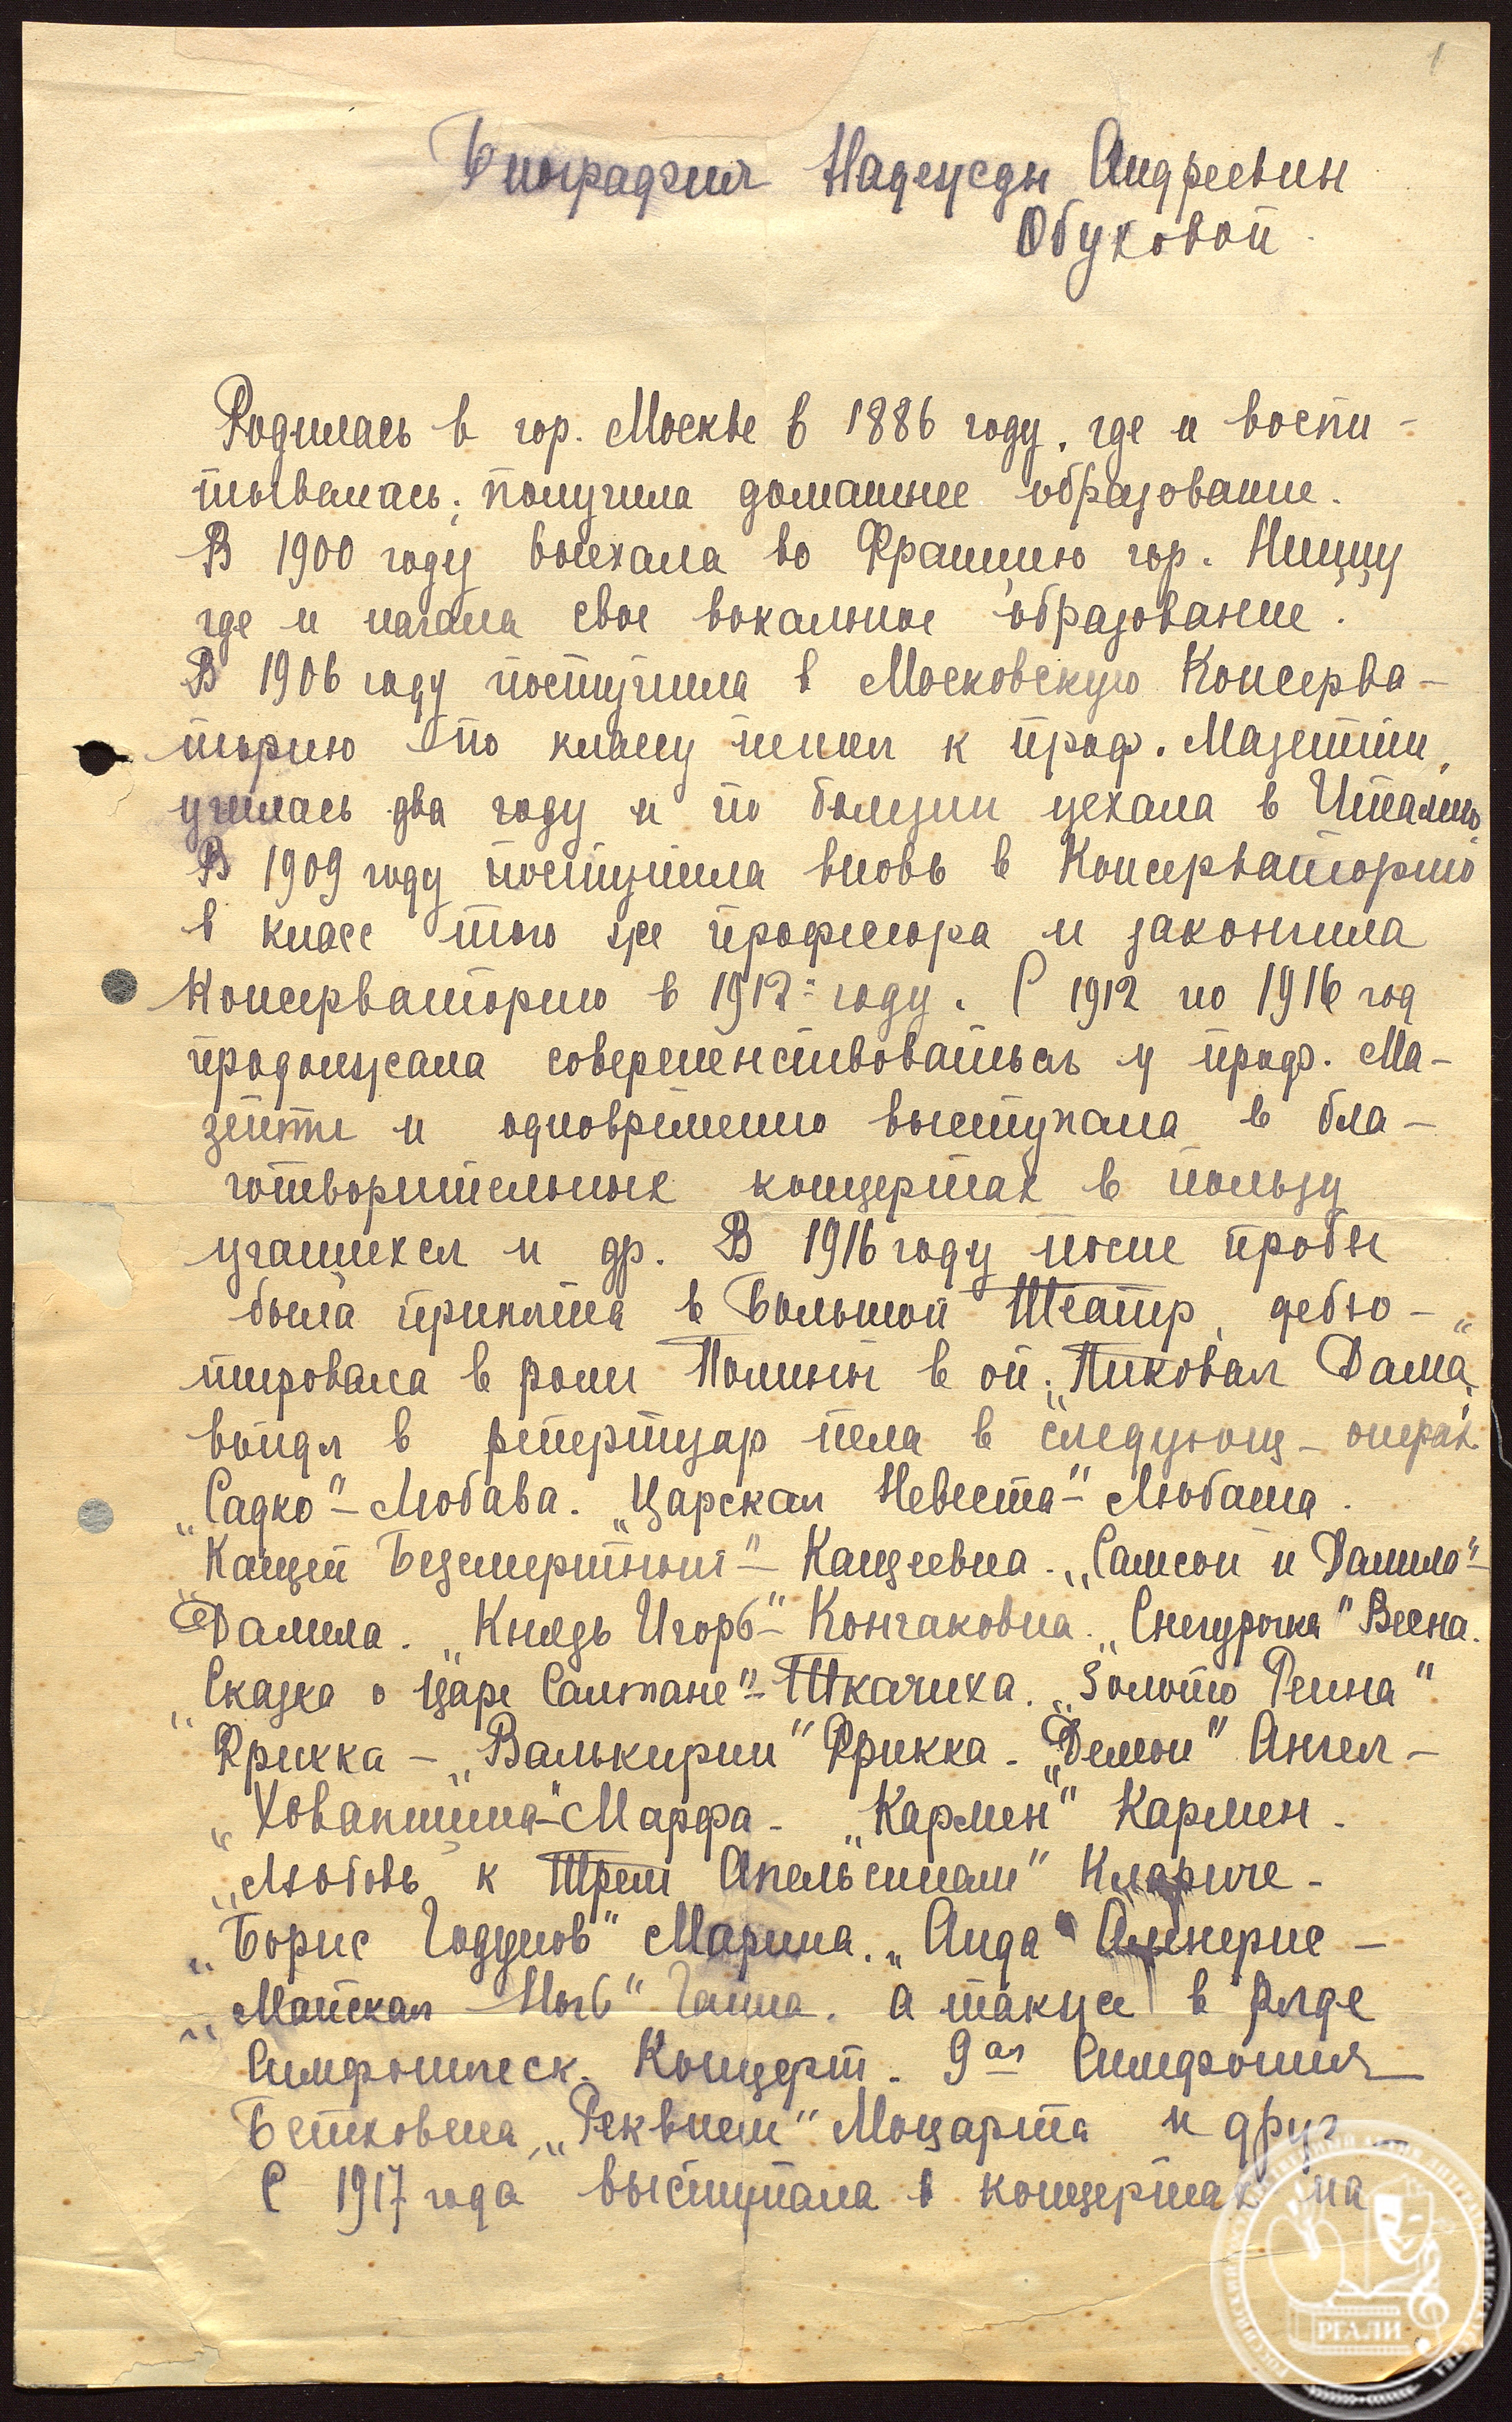 1
Биография Надежды Андреевны
Обуховой.
Родилась в гор. Москве в 1886 году, где и воспи-
тывалась; получила домашнее образование.
В 1900 году выехала во Францию гор. Ниццу
где и начала свое вокальное образование.
В 1906 году поступила в Московскую Консерва-
торию по классу пения к проф. Мазетти,
училась два году и по болезни уехала в Италию.
В 1909 году поступила вновь в Консерваторию
в класс того же професора и закончила
Консерваторию в 1912 году. С 1912 по 1916 год
продолжала совершенствоваться у проф. Ма-
зетти и одновременно выступала в бла-
готворительных концертах в пользу
учащихся и др. В 1916 году после пробы
была принята в Большой Театр, дебю-
тировала в роли Полины в оп. „Пиковая Дама“,
войдя в репертуар пела в следующ. операх
„Садко“ – Любава. „Царская Невеста“ – Любаша.
„Кащей Безсмертный“ – Кащеевна. „Самсон и Далила“ –
Далила. „Князь Игорь“ – Кончаковна. „Снегурочка“ Весна.
„Сказка о Царе Салтане“ – Ткачиха. „Золото Рейна“
Фрикка – „Валькирии“ Фрикка – „Демон“ Ангел –
„Хованщина“ – Марфа – „Кармен“ Кармен –
„Любовь к Трем Апельсинам“ Клариче –
„Борис Годунов“ Марина. „Аида“ Амнерис –
„Майская Ночь“ Ганна. а также в ряде
Симфоническ. Концерт. 9ая Симфония
Бетховена, „Реквием“ Моцарта и друг
С 1917 года выступала в концертах на
РГАЛИ